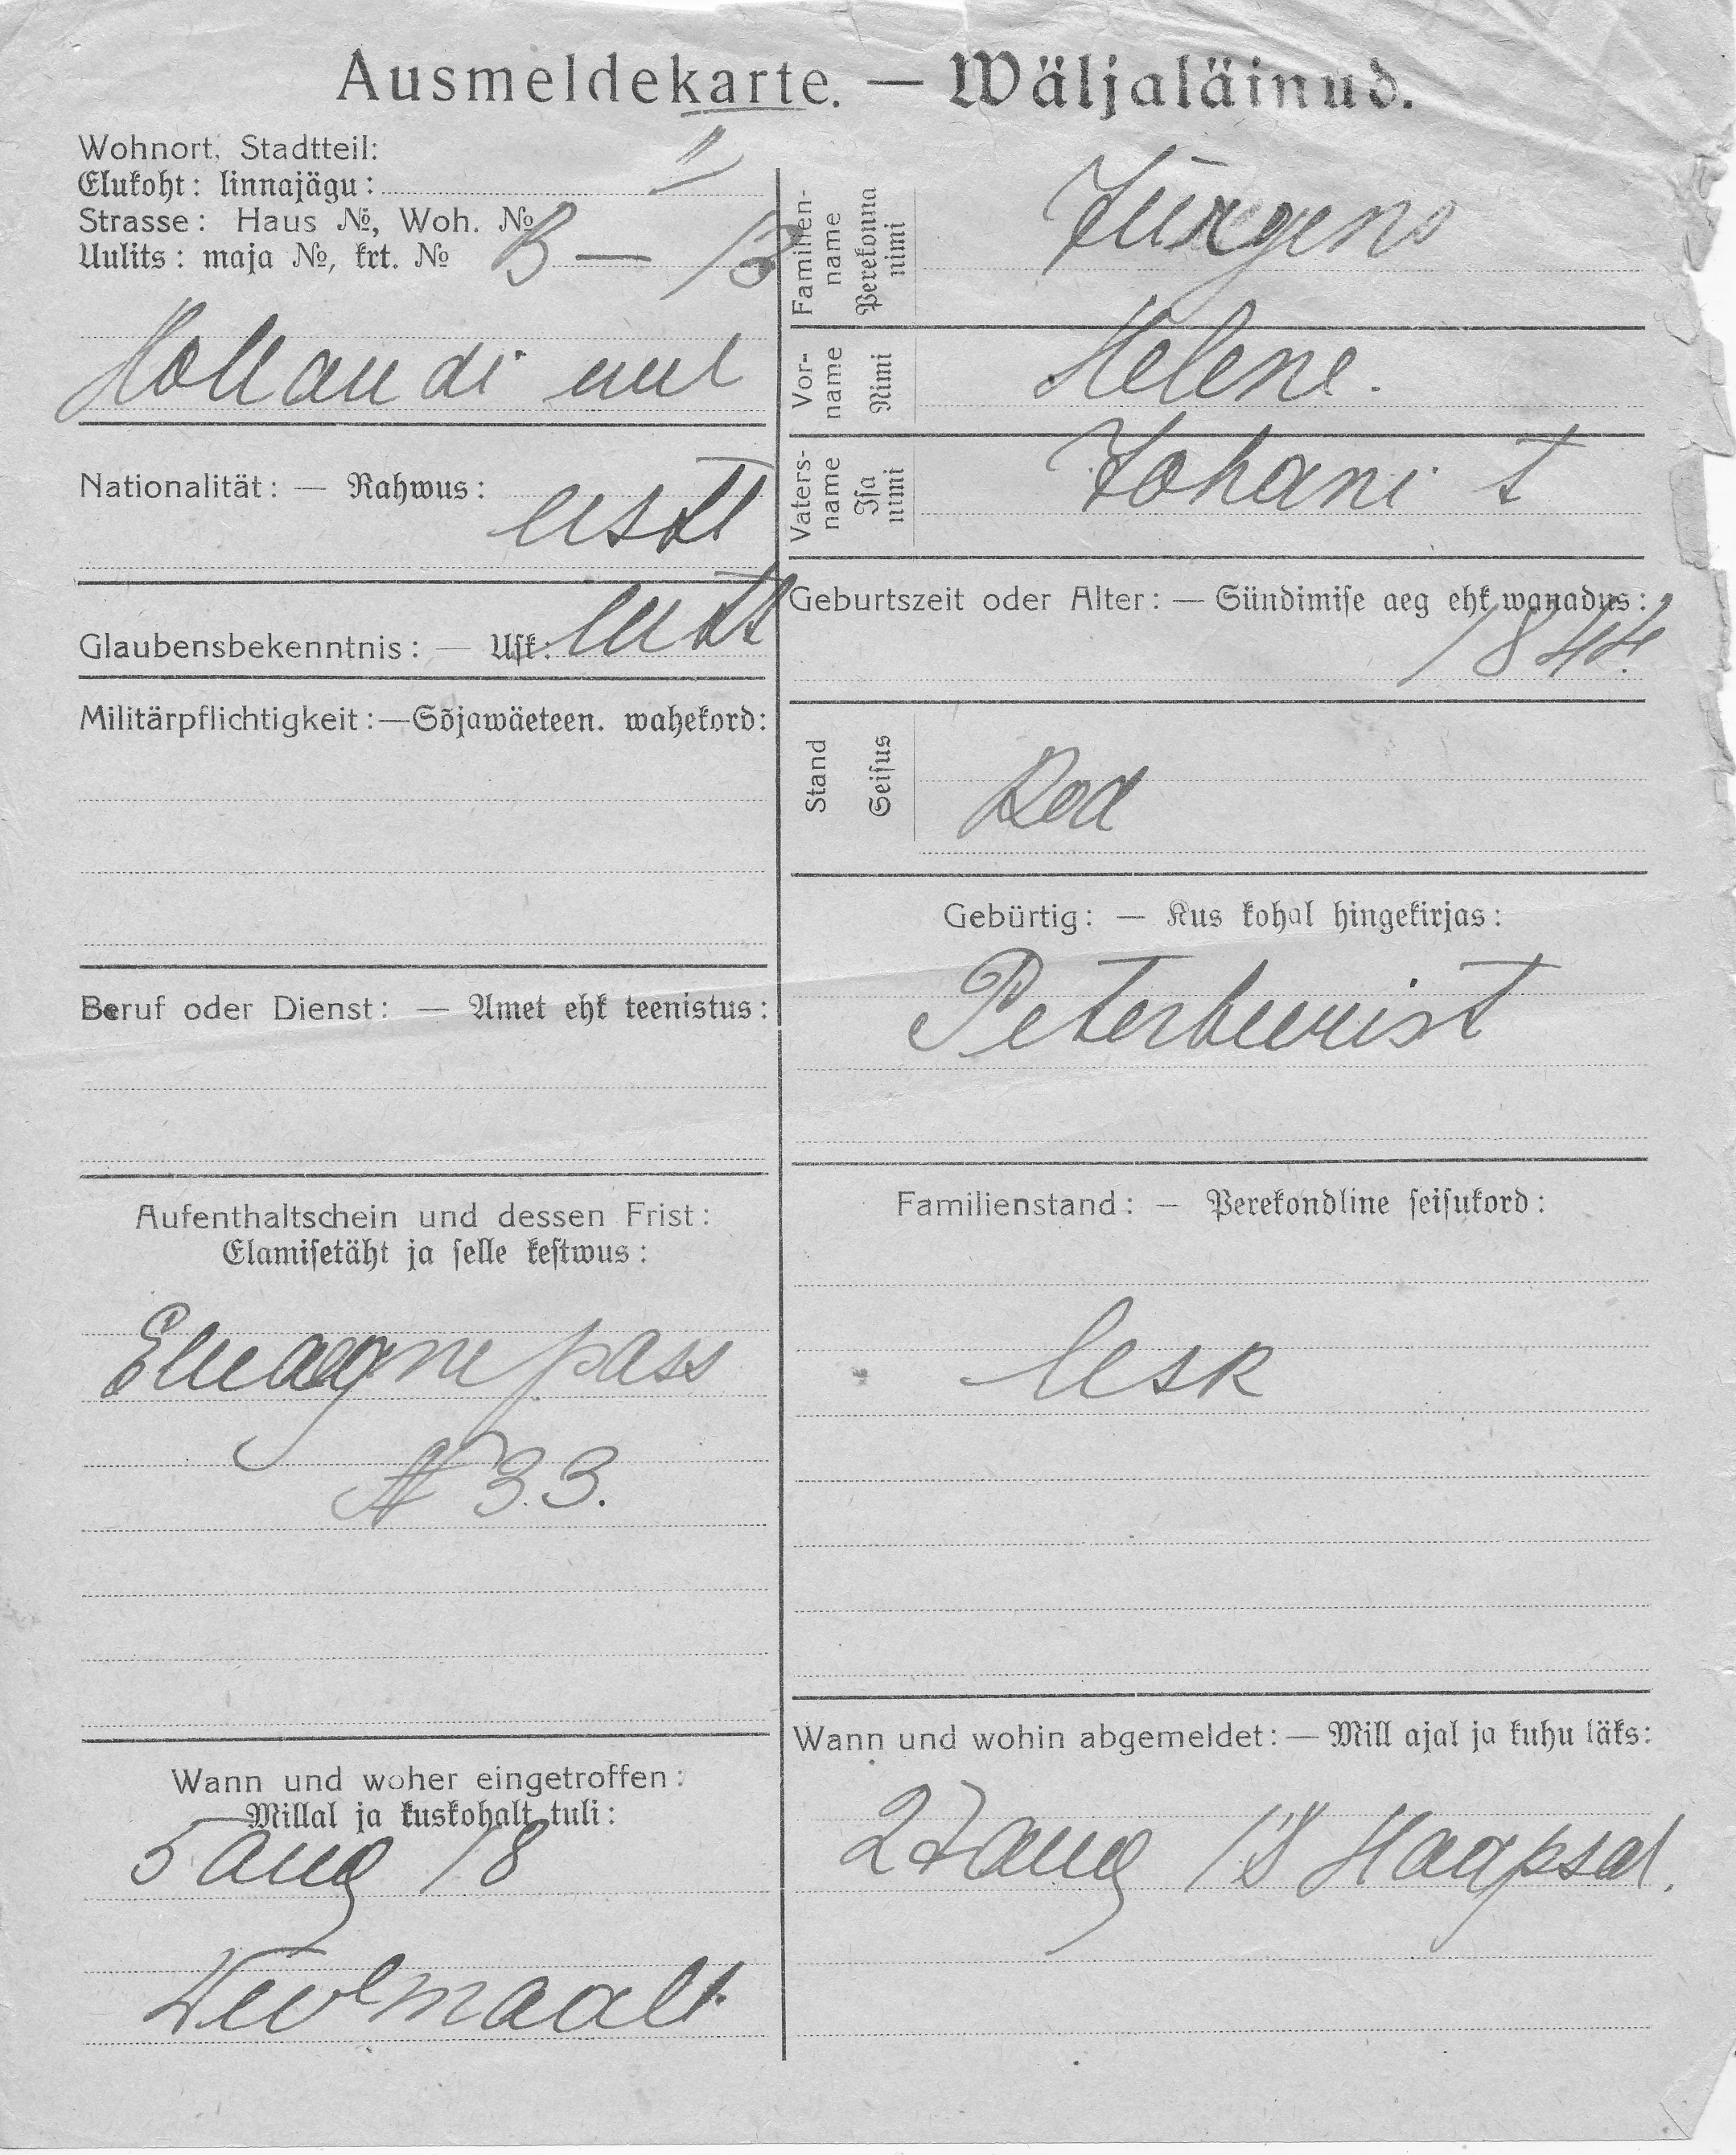 Ausmeldekarte. — Wäljaläinud.
Wohnort, Stadtteil:
Elukoht: linnajägu: II
Strasse: Haus №, Woh. №
Uulits: maja №, krt. № B — 13
Hollandi uul
Nationalität: — Rahwus: eestl
Glaubensbekenntnis: — Usk: lutt
Militärpflichtigkeit:—Sõjawäeteen. wahekord:
Beruf oder Dienst: — Amet ehk teenistus:
Aufenthaltschein und dessen Frist:
Elamisetäht ja selle kestwus:
Eluaegne pass
№ 33.
Wann und woher eingetroffen:
Millal ja kuskohalt tuli:
5 aug 18
Familien-
name
Perekonna
nimi
Jürgens
Vor-
name
Nimi
Helene.
Vaters-
name
Isa
nimi
Johani t
Geburtszeit oder Alter: — Sündimise aeg ehk wanadus:
1844.
Stand
Seisus
Kod
Gebürtig: — Kus kohal hingekirjas:
Peterburist
Familienstand: — Perekondline seisukord:
lesk
Wann und wohin abgemeldet:— Mill ajal ja kuhu läks:
27 aug 18 Haapsal.